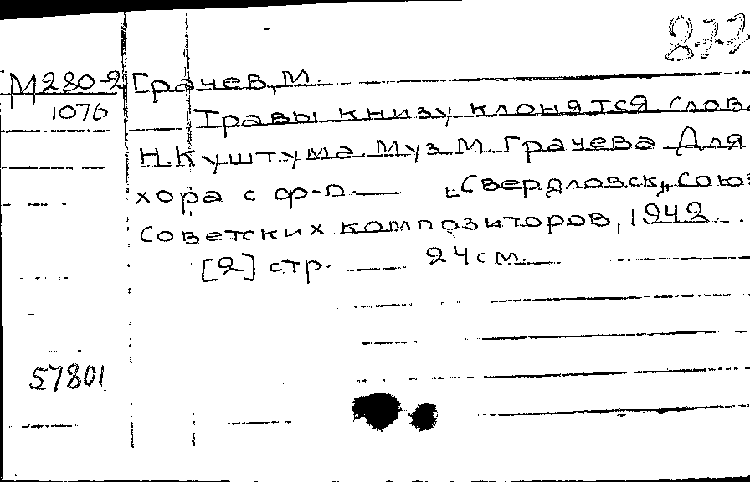 277
М280-2 Грачев, М.
1076 Травы книзу клонятся Слов.
Н. Куштума Муз. М. Грачева Для
хора с ф-п. — „Свердловск„ Союз
советских композиторов, 1942.
[2] стр. — 24 см.
57801